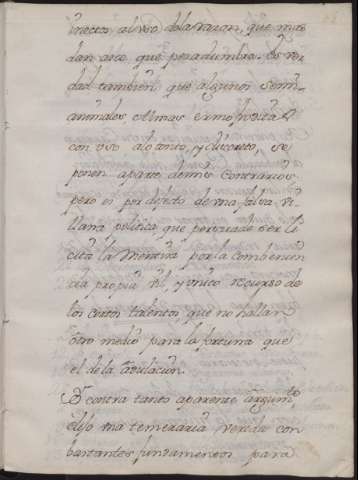 rrectos al uso dela razon, que mas
dan asco, que pesadumbre. Es ver-
dad tambien, que algunos semi-
animales Almas ermofrodita
con uso alcanto, y discurso, se
ponen aparte de mis contrarios
pero es por defecto de una falsa vi-
llana politica que persuade ser li-
cita la Mentira por la combenien
cia propia vil, y unico recurso de
los cortos talentos que no hallan
otro medio para la fortuna que
el dela adulacion.
Contra tanto aparente argumto
elijo una temeraria vereda con
bastantes fundamentos para